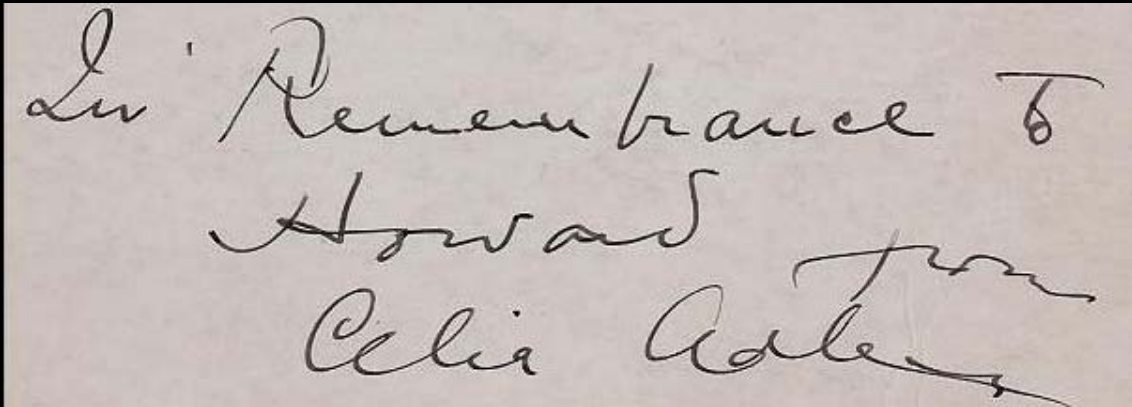 In Remembrance to
Howard from
Celia Adler